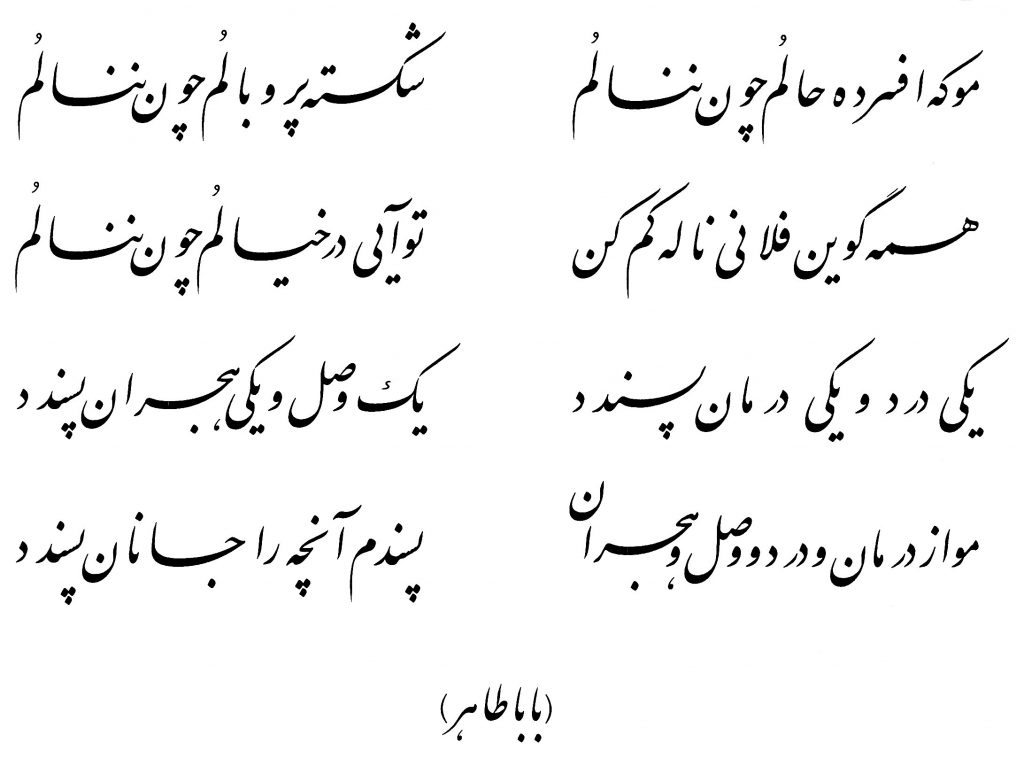 موکه افسرده حالُم چون ننالُم شکسته پر و بالُم چون ننالُم
همه گوین فلانی ناله کم کن تو آیی در خیالُم چون ننالُم
یکی درد و یکی درمان پسندد یک وصل و یکی هجران پسندد
مو از درمان و درد و وصل و هجران پسندم آنچه را جانان پسندد
(باباطاهر)